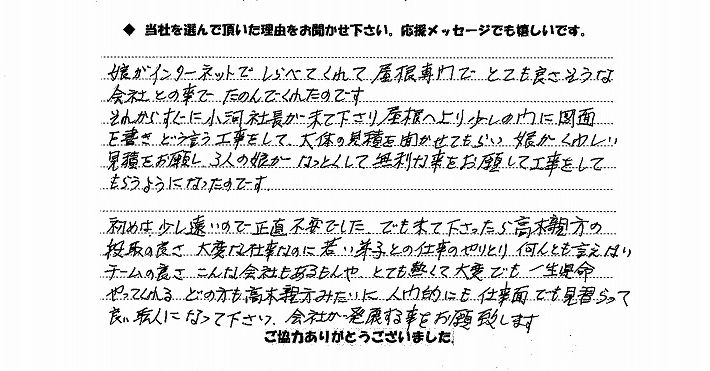 ◆ 当社を選んで頂いた理由をお聞かせ下さい。応援メッセージでも嬉しいです。
娘がインターネットでしらべてくれて 屋根専門で とても良さそうな
会社との事で たのんでくれたのです
それからすぐに小河社長が来て下さり屋根へ上り少しの内に図面
を書き どう言う工事をして、大体の見積を聞かせてもらい 娘がくわしい
見積をお願し 3人の娘がなっとくして無利な事をお願して工事をして
もらうようになったのです。
初めは少し遠いので正直不安でした でも来て下さったら高木親方の
段取の良さ 大変な仕事なのに若い弟子との仕事のやりとり 何んとも言えない
チームの良さ こんな会社もあるもんや とても熱くて大変でも一生県命
やってくれる どの方も高木親方みたいに人内的にも仕事面でも見習らって
良い職人になって下さい、会社が発展する事をお願致します
ご協力ありがとうございました